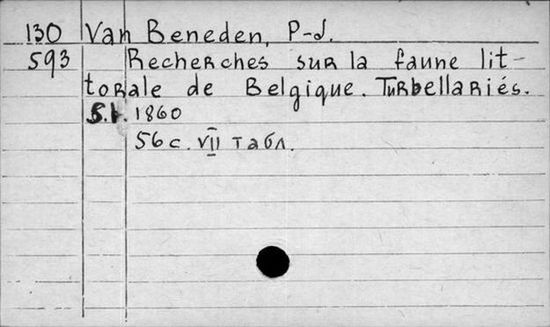 130 Van Beneden, P-J.
593 Recherches sur la faune lit-
torale de Belgique. Turbellariés.
S.l. 1860
56 с. VII табл.